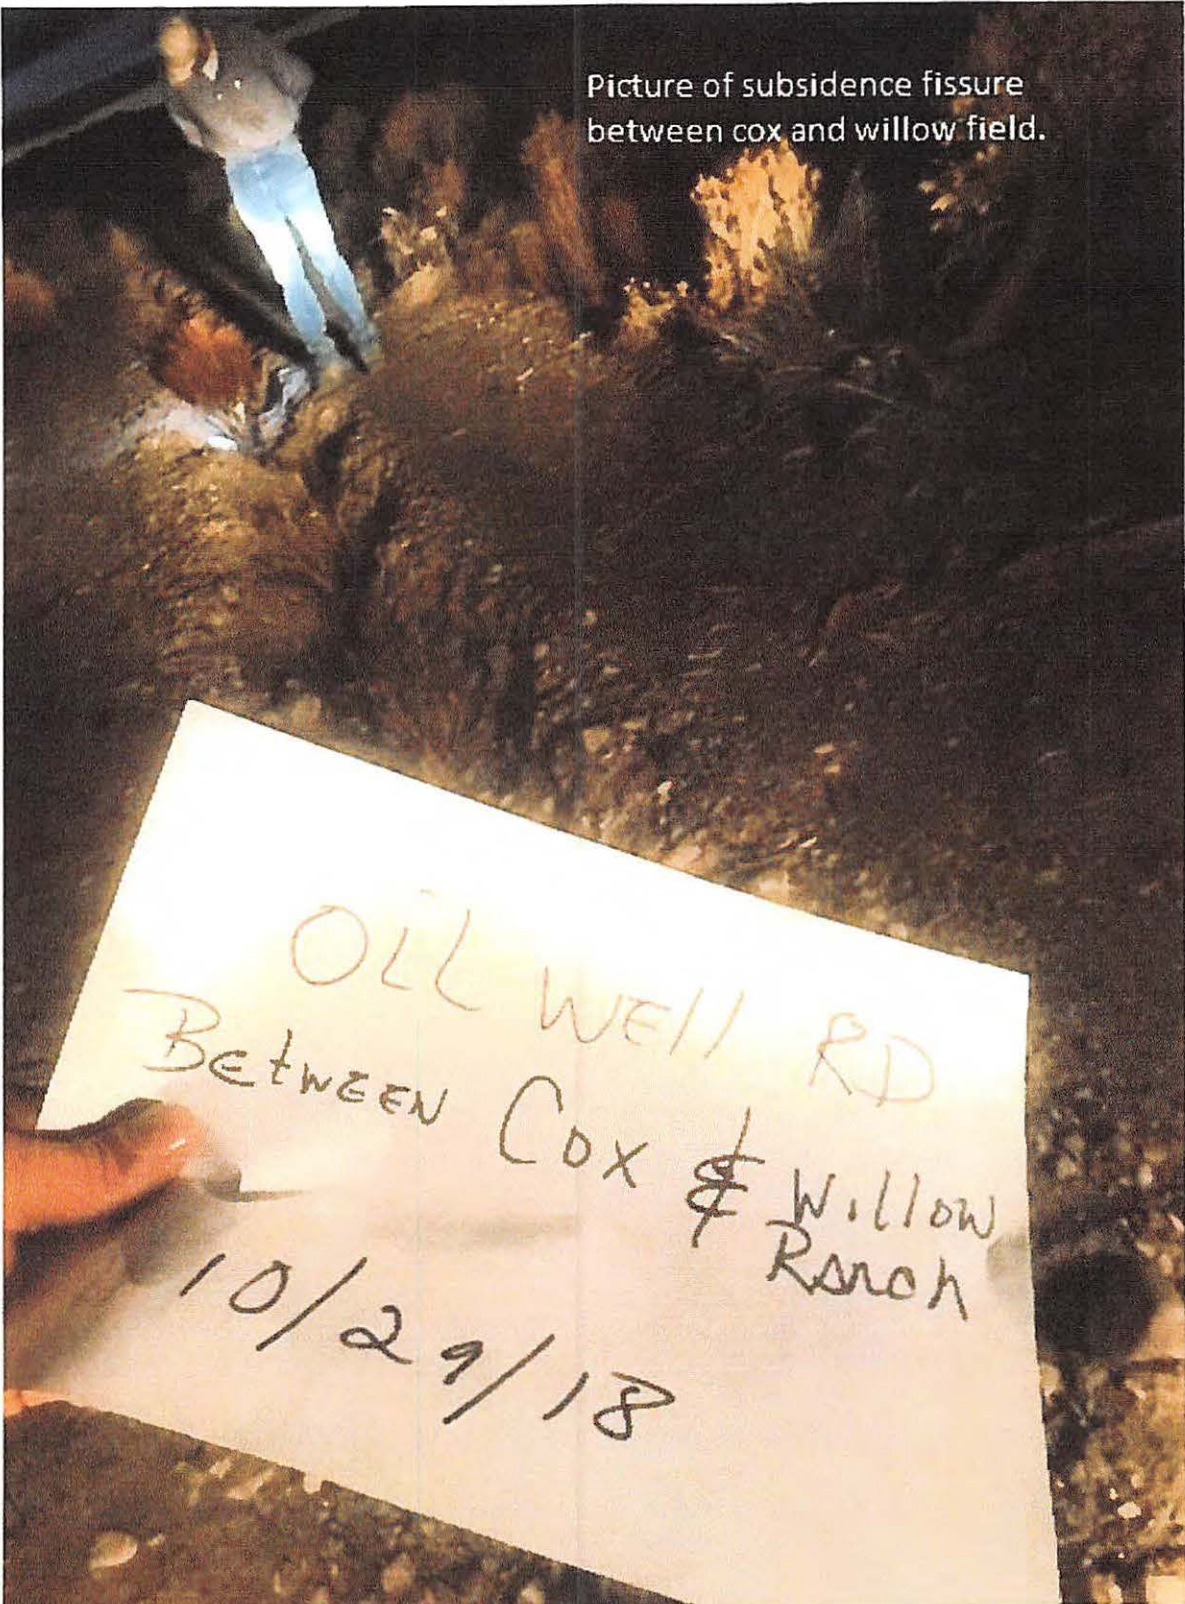 Picture of subsidence fissure
between cox and willow field.
OiL WEll RD
BetwEEN Cox & Willow
Ranch
10/29/18